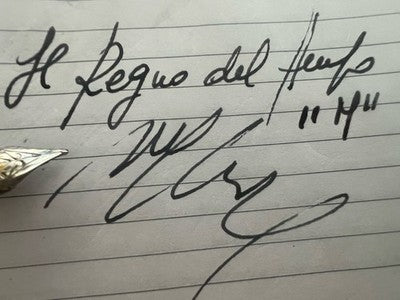 Il Regno del Tempo
"M"